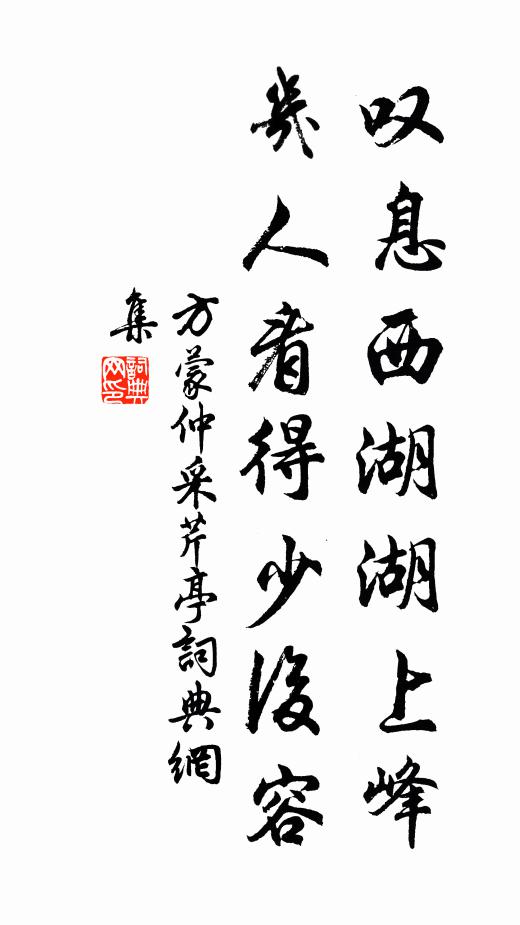 叹息西湖湖上峰
几人看得少从容
方蒙仲采芹亭詞典網
集
詞典網印